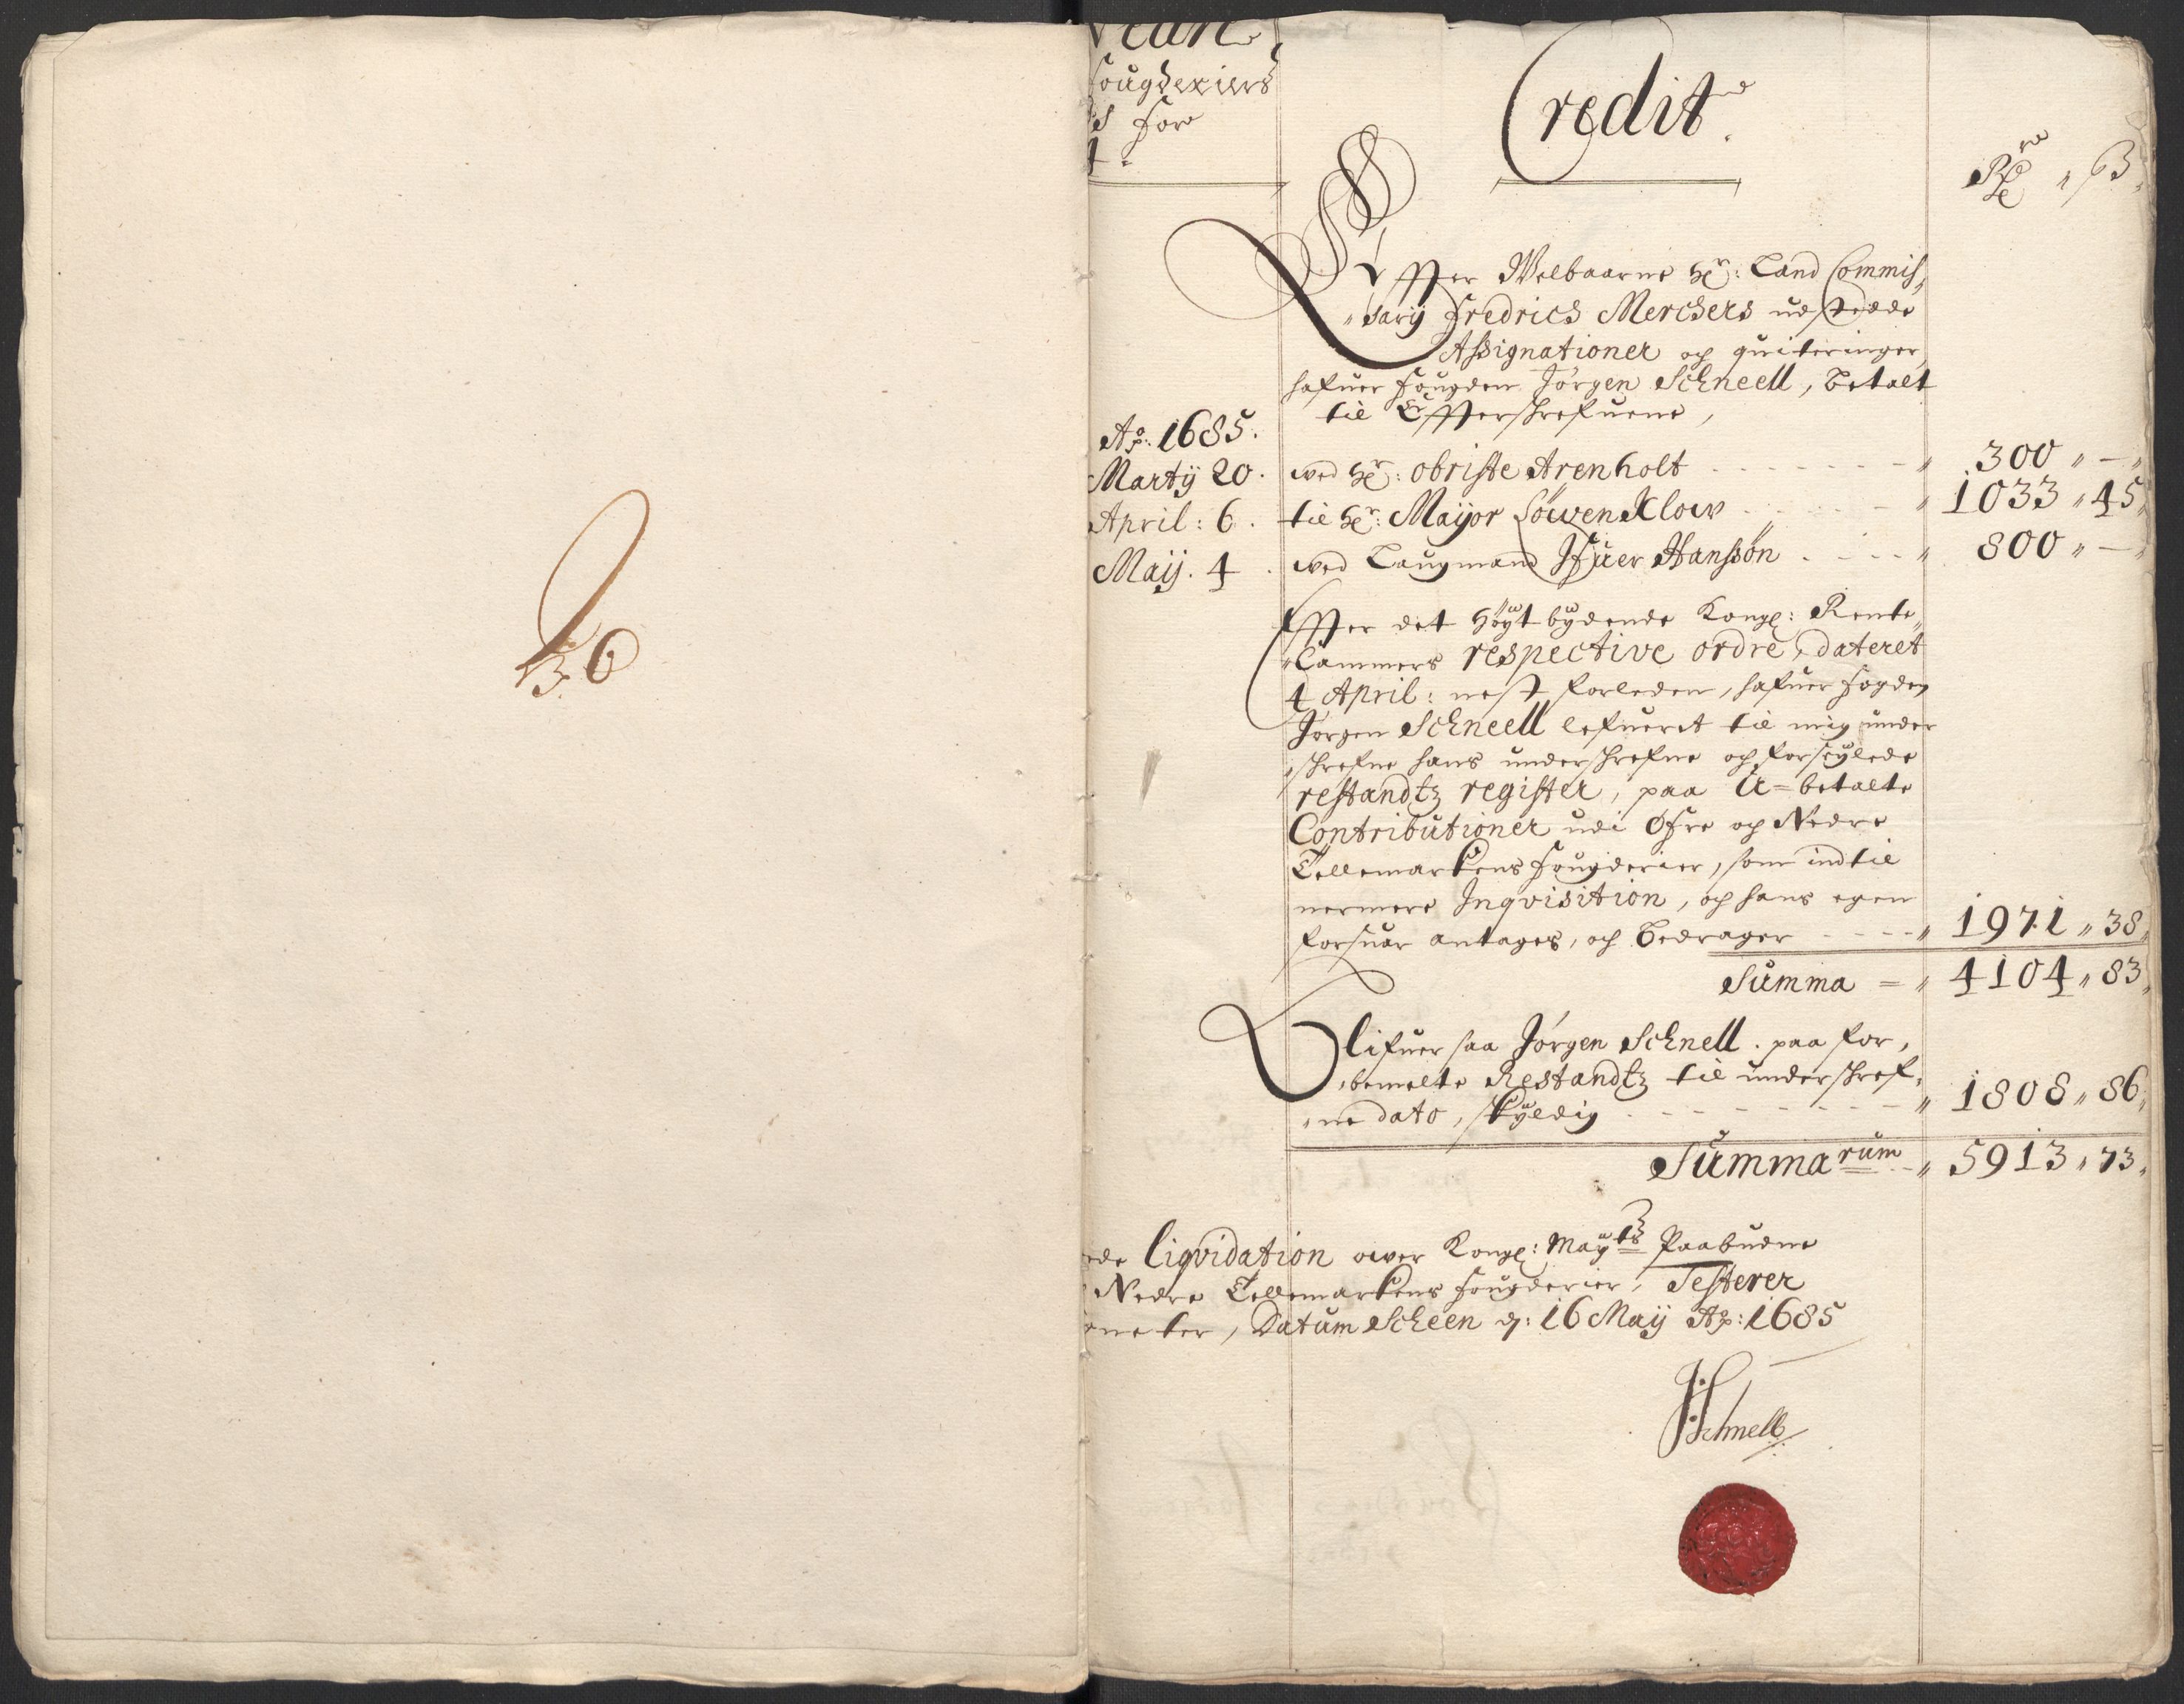 36
Nedre
fougderiers
for
4.
Credit.
Rdr ß
Effter Welbaarne Hr: Land Commis„
„sarij Fredrich Merchers udstedde
Assignationer och quiteringer,
hafuer fougden Jørgen Schneell, betalt
til Effterschrefuene,
Ao: 1685.
Martij 20. ved Hr: obriste Arenholt - - - „ 300 „ — „
April: 6. til Hr: Maijor Löwenklow - - - „ 1033 „ 45 „
Maij. 4. ved Laugmand Ifuer Hansøn - - - „ 800 „ — „
Effter det Høyt bydende Kongl: Rente„
„Cammers respective ordre, dateret
4 April: nest forleden, hafuer fogden
Jørgen Schneell lefueret til mig under
„schrefne hans underschrefne och forseylede
restandtz register, paa U=betalte
Contributioner udi Øfre og Nedre
Tellemarkens fougderier, som indtil
nermere Inqvisition, och hans egen
forsuar antages, och bedrager - - - „ 1971 „ 38 „
Summa = „ 4104 „ 83 „
Blifuer saa Jørgen Schnell. paa for„
„bemelte Restandtz til underschref„
„ne dato, skyldig - - - „ 1808 „ 86 „
Summarum - „ 5913 „ 73 „
Liqvidation ower Kongl: Maytz Paabudne
Nedre Tellemarkens fougderier, Testerer
Datum Scheen d: 16 Maij Ao: 1685
JSchnell